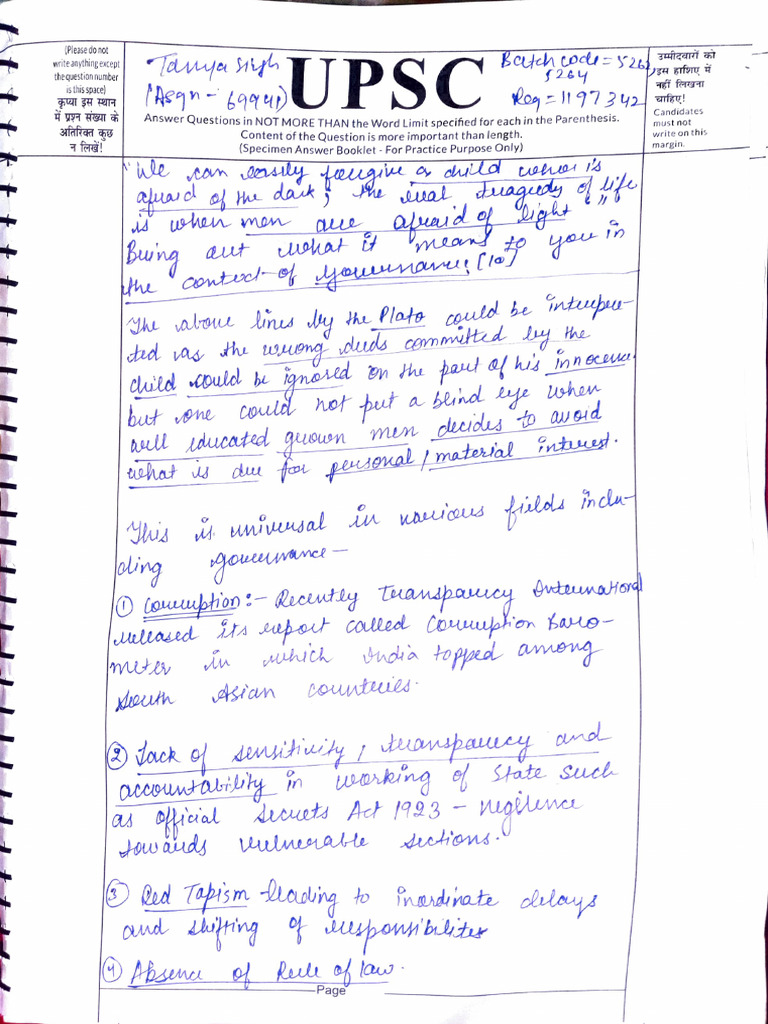 (Please do not
write anything except
the question number
is this space)
कृप्या इस स्थान
में प्रश्न संख्या के
अतिरिक्त कुछ
न लिखें!
Tanya Singh
(Asgn - 69941)
UPSC
Batch code = 5262,
5264
Reg = 1197342
उम्मीदवारों को
इस हाशिए में
नहीं लिखना
चाहिए!
Candidates
must not
write on this
margin.
Answer Questions in NOT MORE THAN the Word Limit specified for each in the Parenthesis.
Content of the Question is more important than length.
(Specimen Answer Booklet - For Practice Purpose Only)
"We can easily forgive a child who is
afraid of the dark; the real tragedy of life
is when men are afraid of light"
Bring out what it means to you in
the context of Governance? [10]
The above lines by the Plato could be interpre-
ted as the wrong deeds committed by the
child could be ignored on the part of his innocence
but one could not put a blind eye when
well educated grown men decides to avoid
what is due for personal/material interest.
This is universal in various fields inclu-
ding governance —
① Corruption :- Recently Transparency International
released its report called Corruption Baro-
meter in which India topped among
South Asian countries.
② Lack of sensitivity, transparency and
accountability in working of State such
as official Secrets Act 1923 - neglience
towards vulnerable sections.
③ Red Tapism leading to inordinate delays
and shifting of responsibilites
④ Absence of Rule of law.
Page